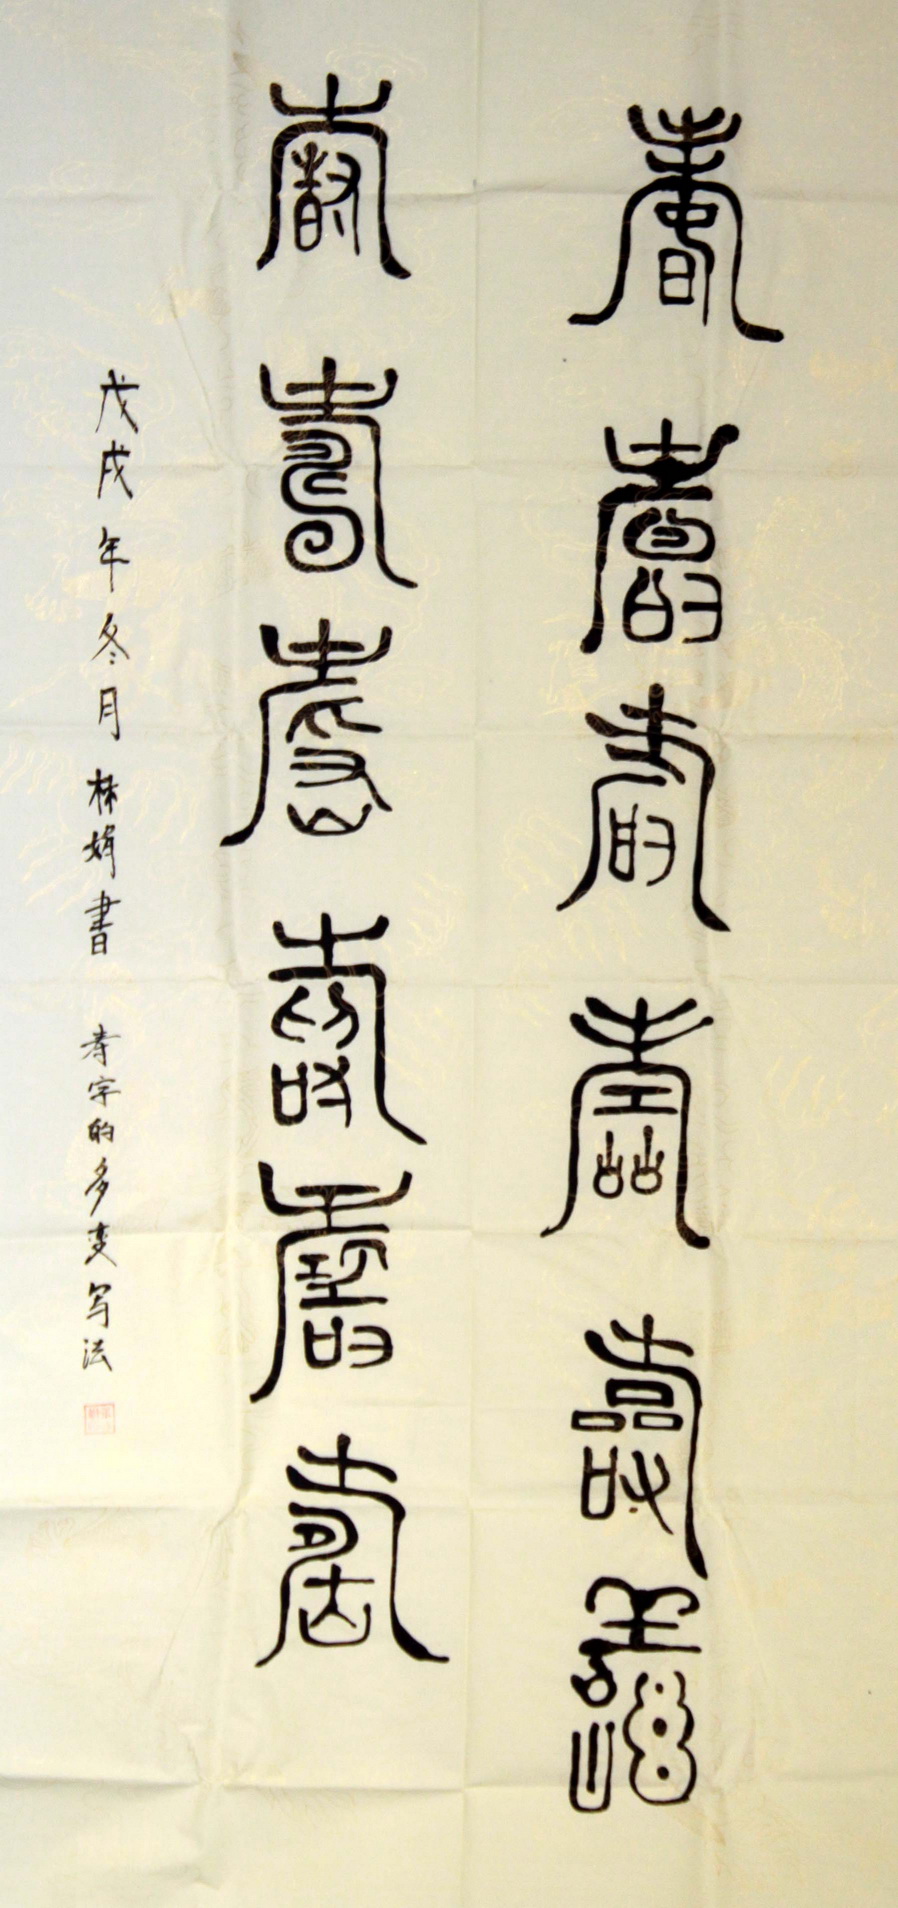 壽壽壽壽壽壽
壽壽壽壽壽壽
戊戌年冬月林娟書 寿字的多变写法